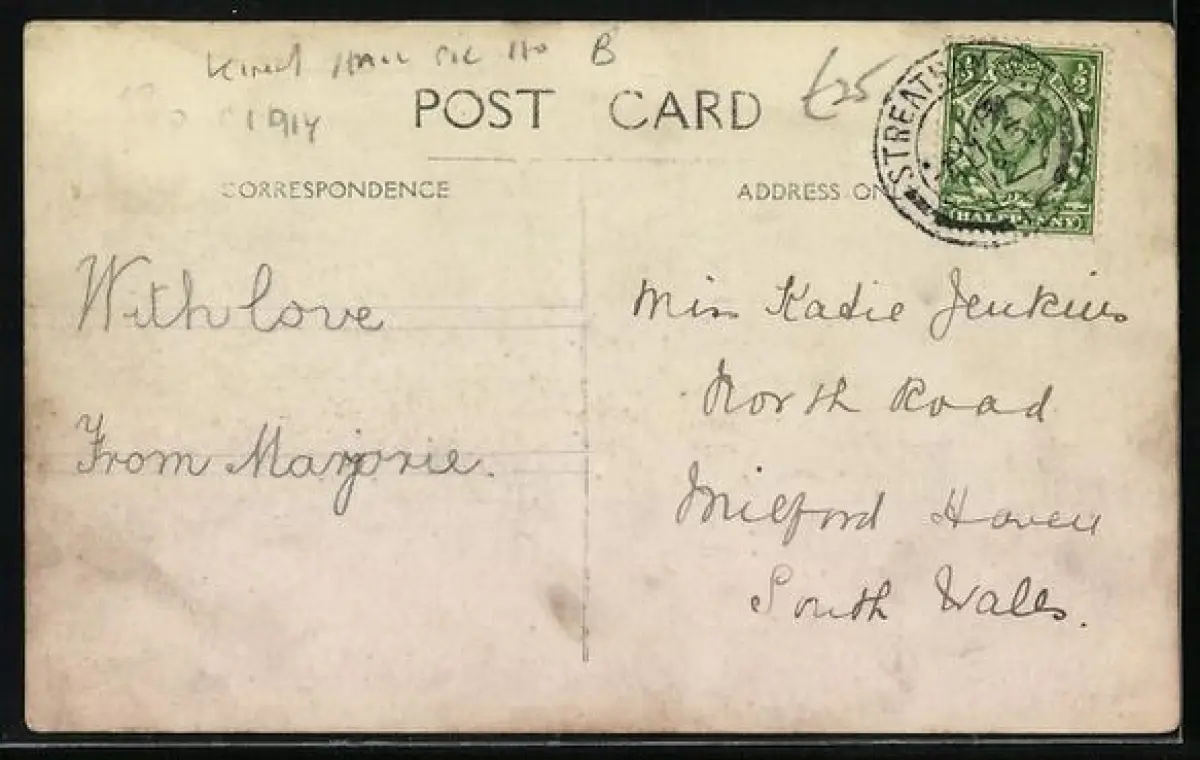 B
1914
POST CARD
£25
STREATH
½ ½
(HALFPENNY)
CORRESPONDENCE
ADDRESS ON
With love
From Marjorie.
Miss Kadie Jenkins
North Road
Milford Haven
South Wales.